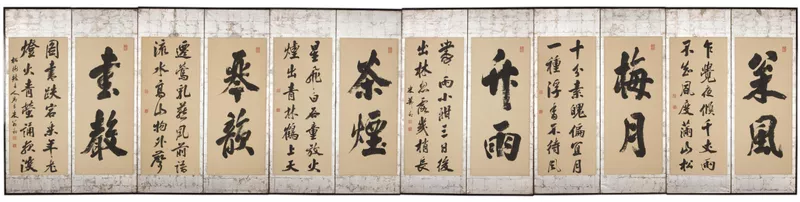 枀風
乍覺夜傾千丈雨
不知風度滿山松
梅月
十分素魄偏宜月
一種浮香不待風
竹雨
雨小 三日後
出林忽露幾梢長
茶煙
星飛白石童敲火
煙出青林鶴上天
琴韻
遷鶯乳燕風前語
流水高山物外
書聲
圖書跌宕 老
燈火青熒誦夜深